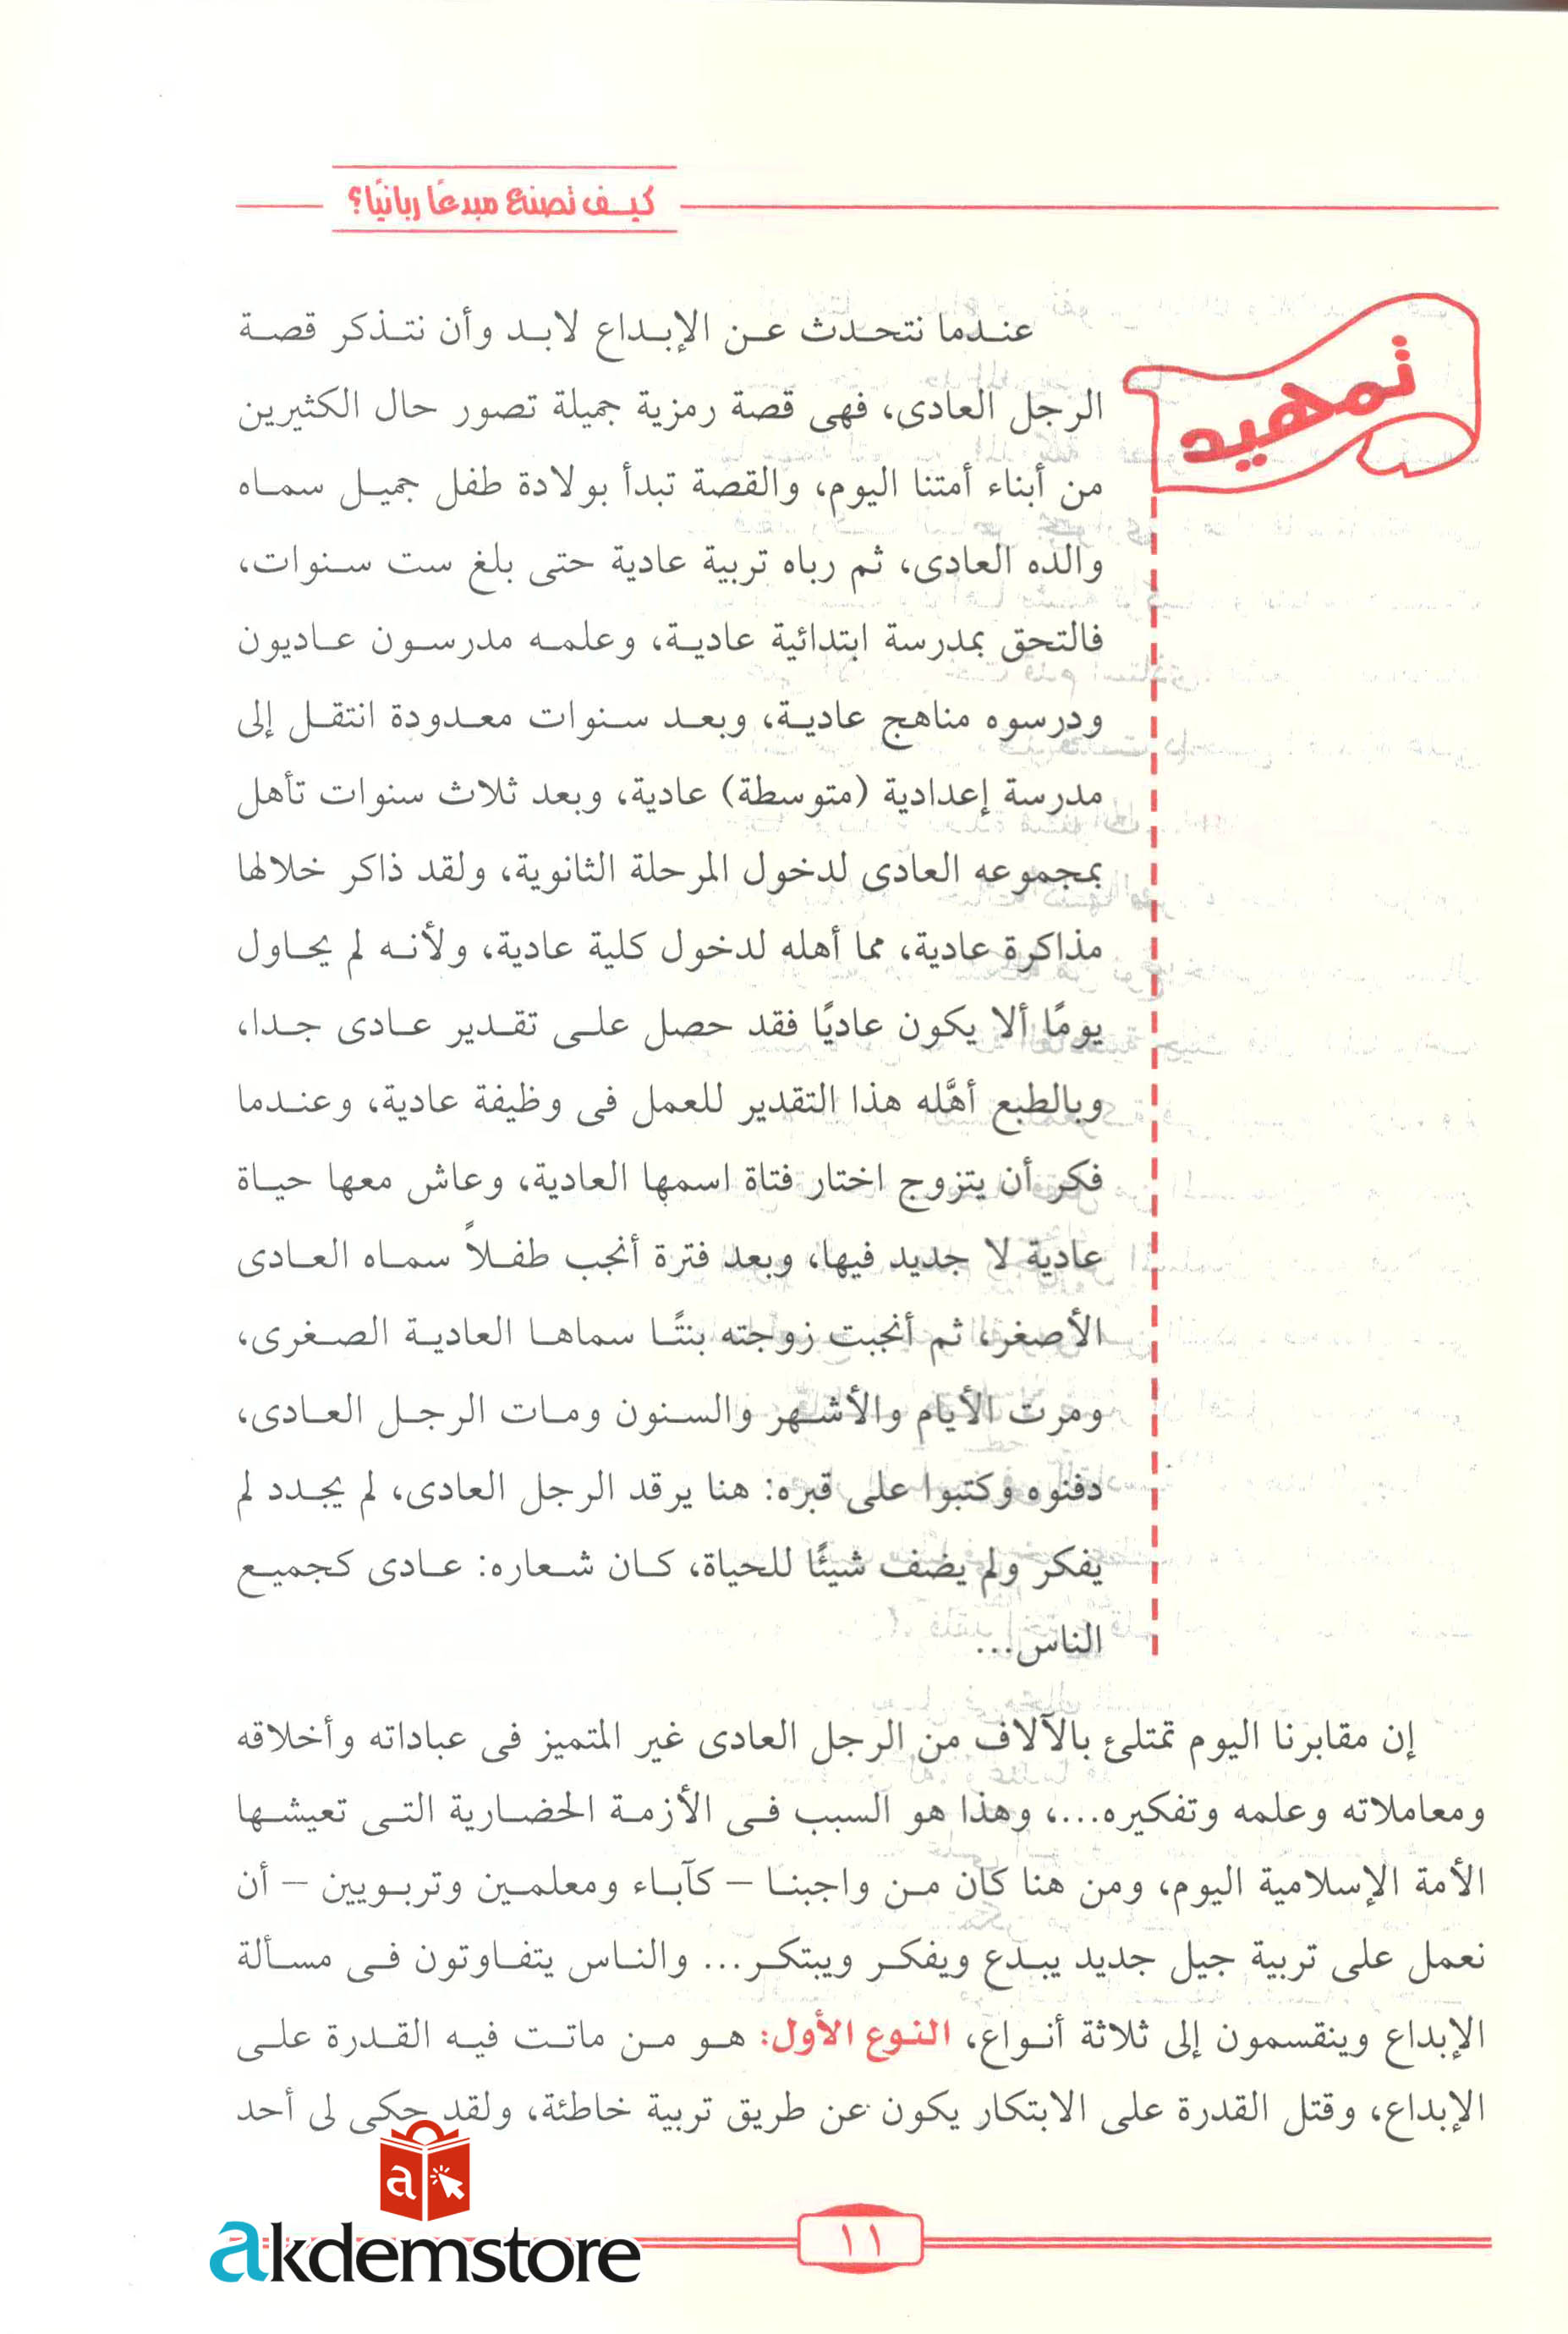 كيف تصنع مبدعًا ربانيًا؟
تمهيد
عندما نتحدث عن الإبداع لابد وأن نتذكر قصة
الرجل العادى، فهى قصة رمزية جميلة تصور حال الكثيرين
من أبناء أمتنا اليوم، والقصة تبدأ بولادة طفل جميل سماه
والده العادى، ثم رباه تربية عادية حتى بلغ ست سنوات،
فالتحق بمدرسة ابتدائية عادية، وعلمه مدرسون عاديون
ودرسوه مناهج عادية، وبعد سنوات معدودة انتقل إلى
مدرسة إعدادية (متوسطة) عادية، وبعد ثلاث سنوات تأهل
بمجموعه العادى لدخول المرحلة الثانوية، ولقد ذاكر خلالها
مذاكرة عادية، مما أهله لدخول كلية عادية، ولأنه لم يحاول
يومًا ألا يكون عاديًا فقد حصل على تقدير عادى جدا،
وبالطبع أهَّله هذا التقدير للعمل فى وظيفة عادية، وعندما
فكر أن يتزوج اختار فتاة اسمها العادية، وعاش معها حياة
عادية لا جديد فيها، وبعد فترة أنجب طفلاً سماه العادى
الأصغر، ثم أنجبت زوجته بنتًا سماها العادية الصغرى،
ومرت الأيام والأشهر والسنون ومات الرجل العادى،
دفنوه وكتبوا على قبره: هنا يرقد الرجل العادى، لم يجدد لم
يفكر ولم يضف شيئًا للحياة، كان شعاره: عادى كجميع
الناس...
إن مقابرنا اليوم تمتلئ بالآلاف من الرجل العادى غير المتميز فى عباداته وأخلاقه
ومعاملاته وعلمه وتفكيره...، وهذا هو السبب فى الأزمة الحضارية التى تعيشها
الأمة الإسلامية اليوم، ومن هنا كان من واجبنا – كآباء ومعلمين وتربويين – أن
نعمل على تربية جيل جديد يبدع ويفكر ويبتكر... والناس يتفاوتون فى مسألة
الإبداع وينقسمون إلى ثلاثة أنواع، النوع الأول: هو من ماتت فيه القدرة على
الإبداع، وقتل القدرة على الابتكار يكون عن طريق تربية خاطئة، ولقد حكى لى أحد
a
akdemstore
١١